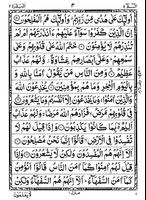 البقرة ٢
٣
اُولٰٓئِكَ عَلٰى هُدًى مِّنْ رَّبِّهِمْ وَاُولٰٓئِكَ هُمُ الْمُفْلِحُوْنَ
اِنَّ الَّذِيْنَ كَفَرُوْا سَوَآءٌ عَلَيْهِمْ ءَاَنْذَرْتَهُمْ اَمْ لَمْ
تُنْذِرْهُمْ لَا يُؤْمِنُوْنَ خَتَمَ اللّٰهُ عَلٰى قُلُوْبِهِمْ وَ
عَلٰى سَمْعِهِمْ وَعَلٰٓى اَبْصَارِهِمْ غِشَاوَةٌ وَّلَهُمْ عَذَابٌ
عَظِيْمٌ وَمِنَ النَّاسِ مَنْ يَّقُوْلُ اٰمَنَّا بِاللّٰهِ وَ
بِالْيَوْمِ الْاٰخِرِ وَمَا هُمْ بِمُؤْمِنِيْنَ يُخٰدِعُوْنَ اللّٰهَ
وَالَّذِيْنَ اٰمَنُوْا وَمَا يَخْدَعُوْنَ اِلَّآ اَنْفُسَهُمْ وَمَا
يَشْعُرُوْنَ فِيْ قُلُوْبِهِمْ مَّرَضٌ فَزَادَهُمُ اللّٰهُ مَرَضًا وَلَهُمْ
عَذَابٌ اَلِيْمٌ بِمَا كَانُوْا يَكْذِبُوْنَ وَاِذَا قِيْلَ لَهُمْ
لَا تُفْسِدُوْا فِي الْاَرْضِ قَالُوْٓا اِنَّمَا نَحْنُ مُصْلِحُوْنَ
اَلَآ اِنَّهُمْ هُمُ الْمُفْسِدُوْنَ وَلٰكِنْ لَّا يَشْعُرُوْنَ وَاِذَا
قِيْلَ لَهُمْ اٰمِنُوْا كَمَآ اٰمَنَ النَّاسُ قَالُوْٓا اَنُؤْمِنُ
كَمَآ اٰمَنَ السُّفَهَآءُ اَلَآ اِنَّهُمْ هُمُ السُّفَهَآءُ وَلٰكِنْ